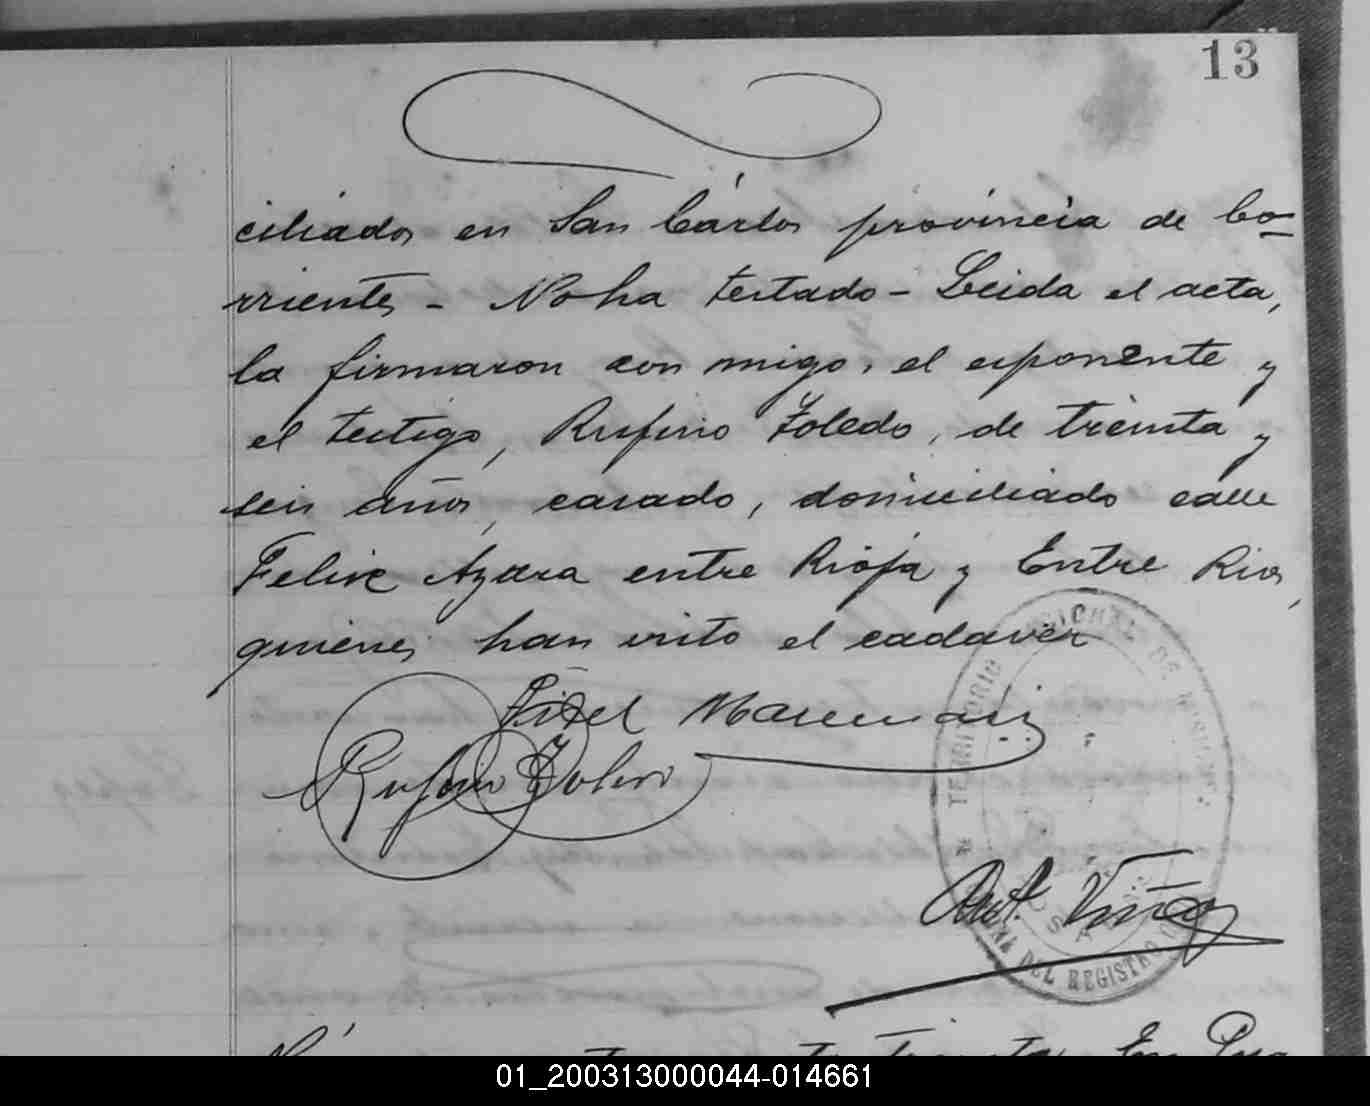 13
ciliados en San Cárlos provincia de Co-
rrientes - No ha testado - Leida el acta,
la firmaron con migo, el esponente y
el testigo, Rufino Toledo, de treinta y
seis años, casado, domiciliado calle
Felix Azara entre Rioja y Entre Rios,
quienes han visto el cadaver
Fidel
Rufino Toledo
TERRITORIO NACIONAL DE MISIONES
Ant. Viñas
DEL REGISTRO
treinta. En
01_200313000044-014661